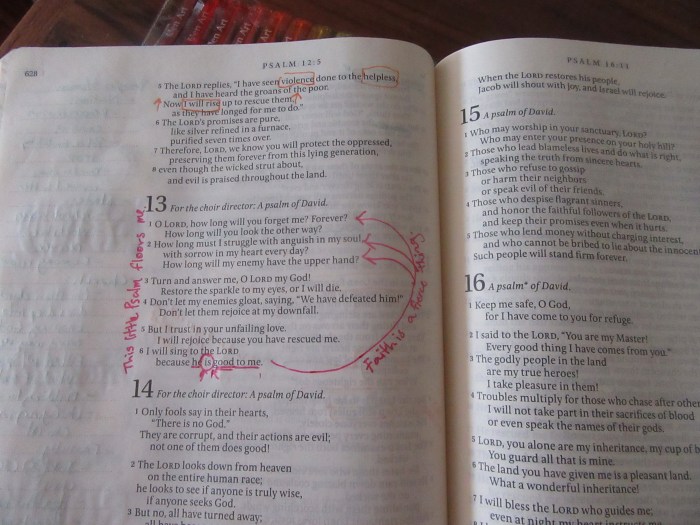 628
PSALM 12:5
5 The LORD replies, "I have seen violence done to the helpless,
and I have heard the groans of the poor.
Now I will rise up to rescue them,
as they have longed for me to do."
6 The LORD's promises are pure,
like silver refined in a furnace,
purified seven times over.
7 Therefore, LORD, we know you will protect the oppressed,
preserving them forever from this lying generation,
8 even though the wicked strut about,
and evil is praised throughout the land.
13 For the choir director: A psalm of David.
1 O LORD, how long will you forget me? Forever?
How long will you look the other way?
2 How long must I struggle with anguish in my soul,
with sorrow in my heart every day?
How long will my enemy have the upper hand?
3 Turn and answer me, O LORD my God!
Restore the sparkle to my eyes, or I will die.
4 Don't let my enemies gloat, saying, "We have defeated him!"
Don't let them rejoice at my downfall.
5 But I trust in your unfailing love.
I will rejoice because you have rescued me.
6 I will sing to the LORD
because he is good to me.
This little Psalm floors me.
Faith is a fierce thing
14 For the choir director: A psalm of David.
1 Only fools say in their hearts,
"There is no God."
They are corrupt, and their actions are evil;
not one of them does good!
2 The LORD looks down from heaven
on the entire human race;
he looks to see if anyone is truly wise,
if anyone seeks God.
3 But no, all have turned away;
PSALM 16:11
When the LORD restores his people,
Jacob will shout with joy, and Israel will rejoice.
15 A psalm of David.
1 Who may worship in your sanctuary, LORD?
Who may enter your presence on your holy hill?
2 Those who lead blameless lives and do what is right,
speaking the truth from sincere hearts.
3 Those who refuse to gossip
or harm their neighbors
or speak evil of their friends.
4 Those who despise flagrant sinners,
and honor the faithful followers of the LORD,
and keep their promises even when it hurts.
5 Those who lend money without charging interest,
and who cannot be bribed to lie about the innocent
Such people will stand firm forever.
16 A psalm* of David.
1 Keep me safe, O God,
for I have come to you for refuge.
2 I said to the LORD, "You are my Master!
Every good thing I have comes from you."
3 The godly people in the land
are my true heroes!
I take pleasure in them!
4 Troubles multiply for those who chase after other
I will not take part in their sacrifices of blood
or even speak the names of their gods.
5 LORD, you alone are my inheritance, my cup of b
You guard all that is mine.
6 The land you have given me is a pleasant land.
What a wonderful inheritance!
7 I will bless the LORD who guides me;
even at night my heart instructs me